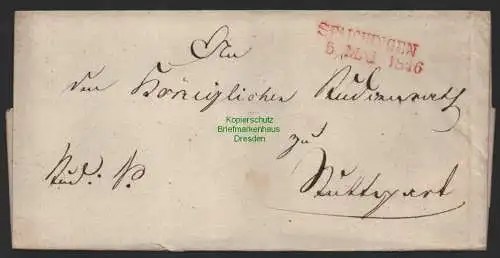 SPAICHINGEN
5. MAI 1846
An
den Königlichen Studienrath
Kopierschutz
Briefmarkenhaus
Dresden
zu
Stud: P.
Stuttgart